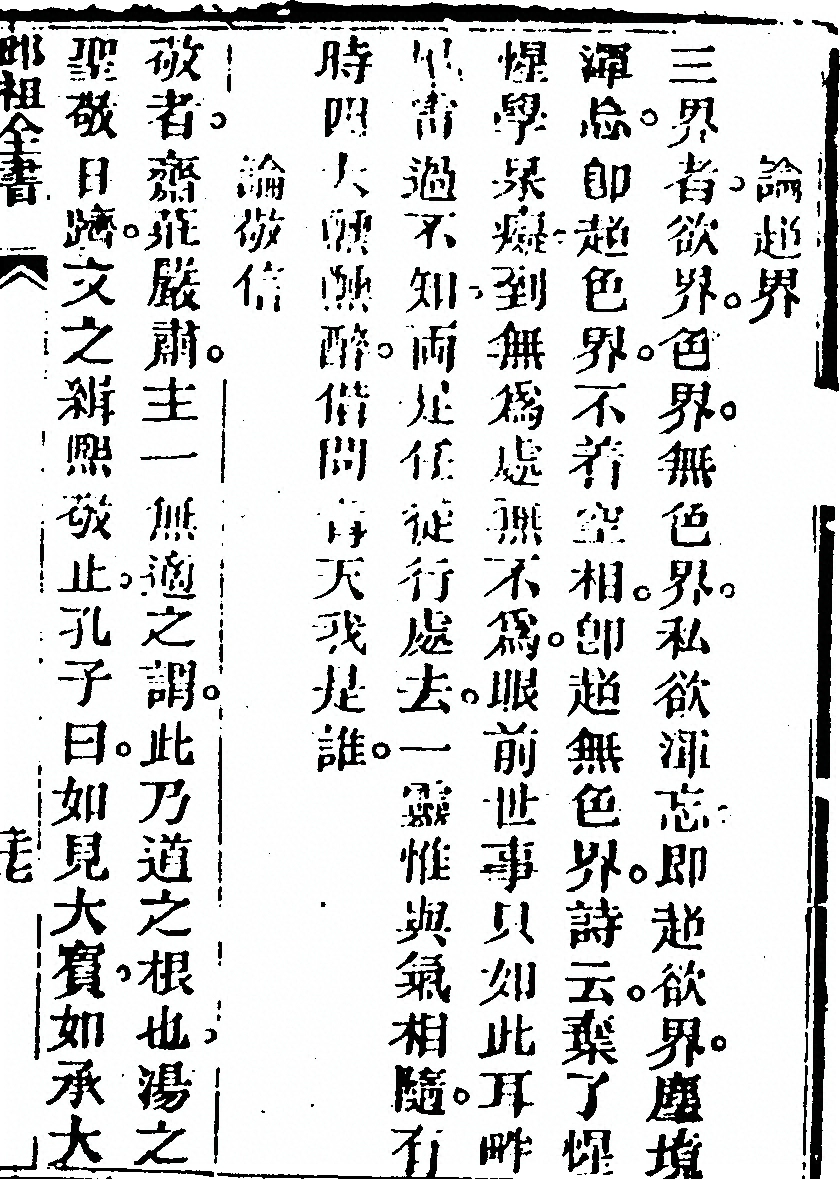 論超界
三界者欲界色界無色界私欲渾忘即超欲界塵境
渾忘卽超色界不着空相卽超無色界詩云棄了惺
惺學呆癡到無爲處無不爲眼前世事只如此耳畔
風雷過不知兩足任從行處去一靈惟與氣相隨有
時四大醺醺醉借問青天我是誰
論敬信
敬者齋莊嚴肅主一無適之謂此乃道之根也湯之
聖敬日躋文之緝熙敬止孔子曰如見大賓如承大
祖全書